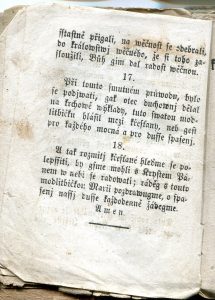 šťastně přigali, na wěčnost se odebrali,
do králowstwj wěčného, že si toho za-
slaužili, Bůh gim dal radost wěčnau.
17.
Při tomto smutném průwodu, bylo
se podjwati, gak otec duchownj dělal
na krchowě wýklady, tuto swatau mod-
litbičku hlásil mezi křesťany, neb gest
pro každého mocna a pro dusse spasenj.
18.
A tak rozmilj křesťané hleďme se po-
lepssiti, by gsme mohli s Krystem Pá-
nem w nebi se radowati; ráděg s tauto
modlitbičkau Marii pozdrawugme, o spa-
senj nassj dusse každodenně žádegme.
Amen